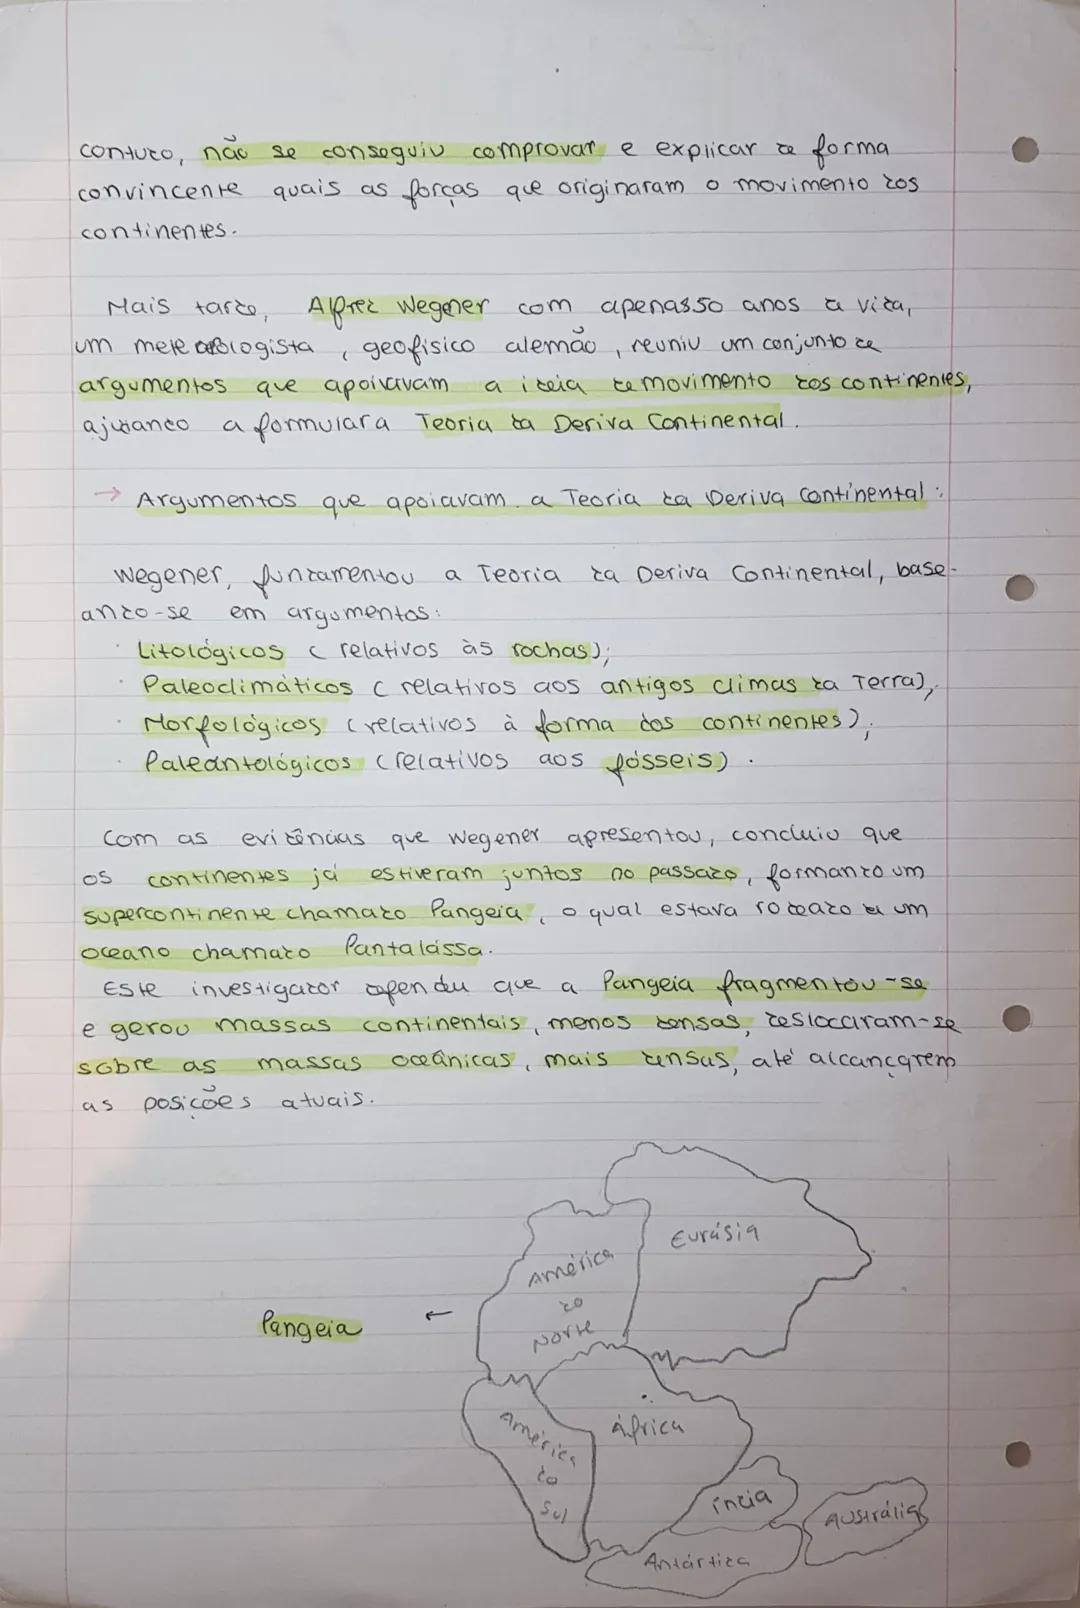 contudo, não se conseguiu comprovar e explicar de forma
convincente quais as forças que originaram o movimento dos
continentes.
Mais tarde, Alfred Wegener com apenas 50 anos de vida,
um meteorologista, geofísico alemão, reuniu um conjunto de
argumentos que apoiavam a ideia de movimento dos continentes,
ajudando a formular a Teoria da Deriva Continental.
→ Argumentos que apoiavam a Teoria da Deriva Continental:
Wegener, fundamentou a Teoria da Deriva Continental, base-
ando-se em argumentos:
· Litológicos (relativos às rochas);
· Paleoclimáticos (relativos aos antigos climas da Terra);
· Morfológicos (relativos à forma dos continentes);
· Paleantológicos (relativos aos fósseis).
Com as evidências que Wegener apresentou, concluio que
os continentes já estiveram juntos no passado, formando um
supercontinente chamado Pangeia, o qual estava rodeado de um
oceano chamado Pantalássa.
Este investigador que a Pangeia fragmentou-se
e gerou massas continentais, menos densas, deslocaram-se
sobre as massas oceânicas, mais densas, até alcançarem
as posições atuais.
Eurásia
América
do
Norte
Pangeia ←
América
do
Sul
África
Índia
Austrália
Antártida